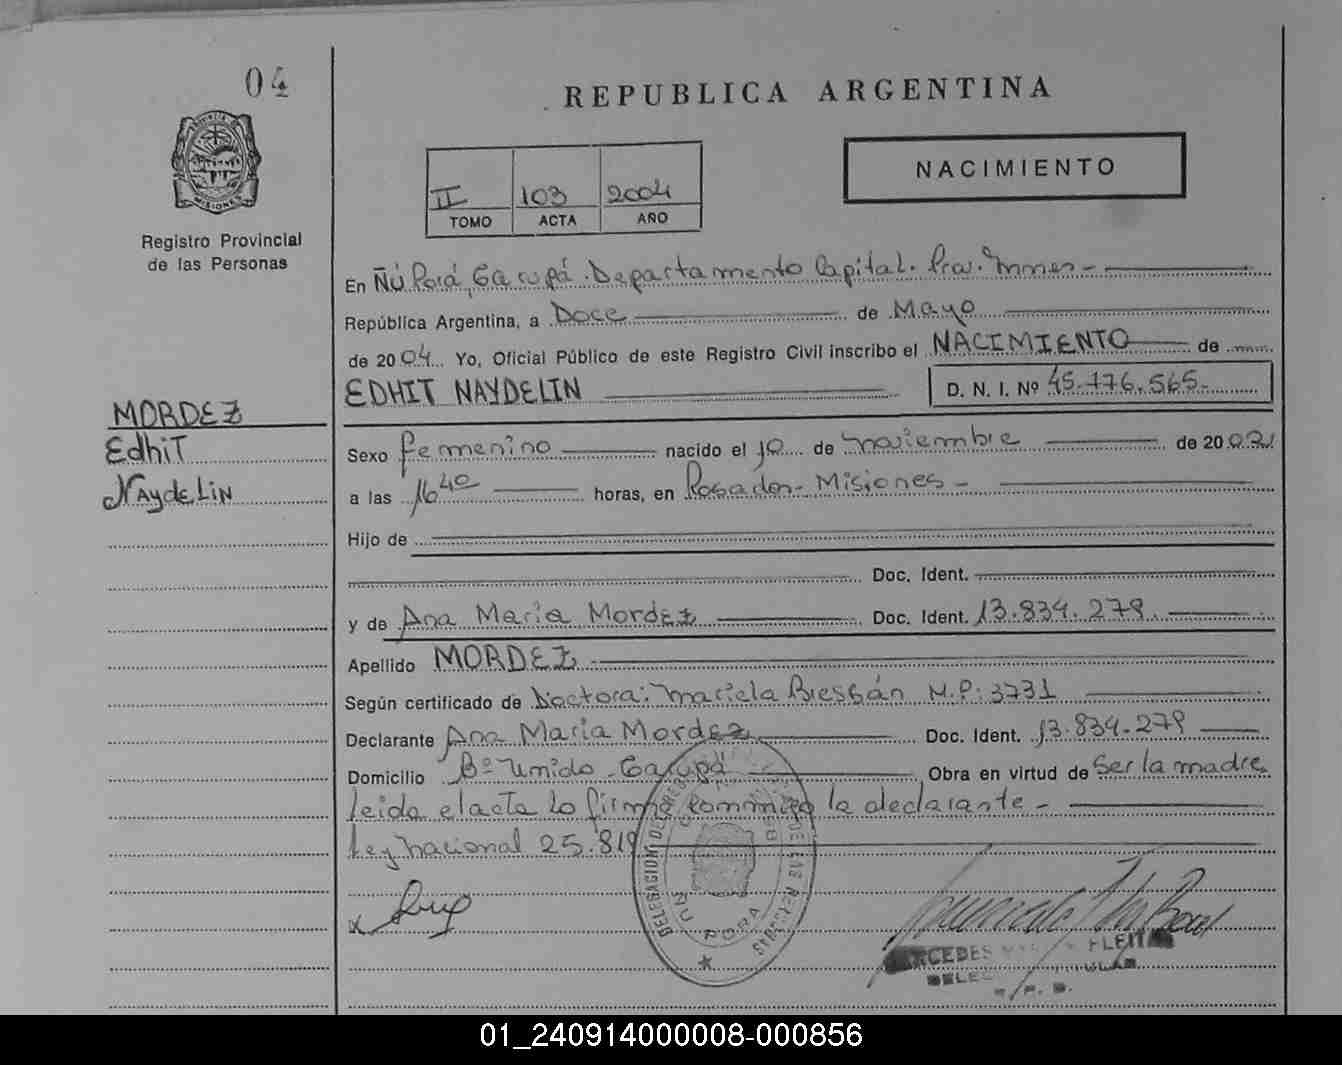 04
REPUBLICA ARGENTINA
II 103 2004
TOMO ACTA AÑO
NACIMIENTO
PROVINCIA DE
MISIONES
Registro Provincial
de las Personas
En Ñú Porá, Garupá. Departamento Capital. Prov. Mnes-
República Argentina, a Doce de Mayo
de 2004 Yo, Oficial Público de este Registro Civil inscribo el NACIMIENTO de
EDHIT NAYDELIN D. N. I. Nº 45.176.565-
MORDEZ
Edhit
Naydelin
Sexo femenino nacido el 10 de noviembre de 2003
a las 16 40 horas, en Posadas- Misiones-
Hijo de
Doc. Ident.
y de Ana Maria Mordez Doc. Ident. 13.834.279.
Apellido MORDEZ
Según certificado de Doctora: Mariela M.P: 3731
Declarante Ana Maria Mordez Doc. Ident. 13.834.279
Domicilio Bº Unido Garupá Obra en virtud de Ser la madre
leida el acta lo firma conmigo la declarante-
Ley nacional 25.819
DELEGACION DE LAS PERSONAS
ÑU PORA
FLEITAS
01_240914000008-000856